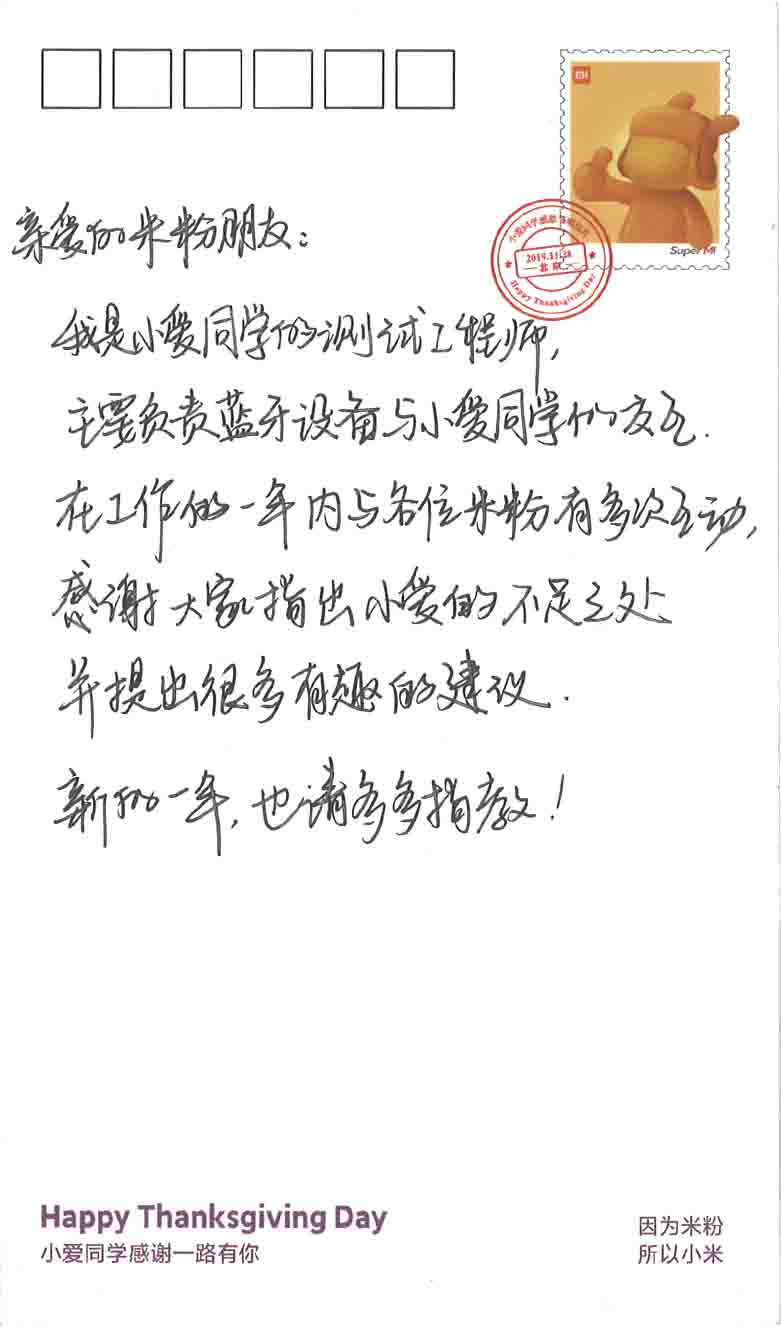 MI
Super MI
2019.11.28
北京
Happy Thanksgiving Day
亲爱的米粉朋友：
我是小爱同学的测试工程师，
主要负责蓝牙设备与小爱同学的交互.
在工作的一年内与各位米粉有多次互动，
感谢大家指出小爱的不足之处、
并提出很多有趣的建议.
新的一年，也请多多指教！
Happy Thanksgiving Day
小爱同学感谢一路有你
因为米粉
所以小米